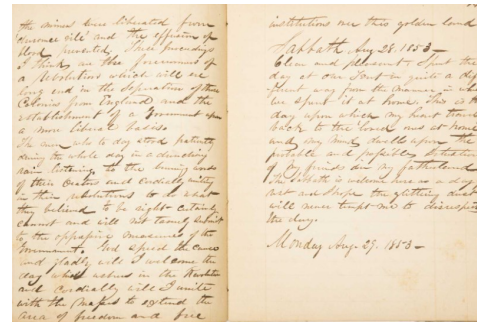 the miners were liberated from
"durance vile" and the effusion of
blood prevented. These proceedings
I think are the forerunners of
a Revolution which will ere
long end in the Separation of these
Colonies from England and the
establishment of a Government upon
a more liberal basis.
The men who to day stood patiently
during the whole day in a drenching
rain listening to the burning words
of their Orators and cordially unite
in their resolutions to do what
they believed to be right certainly
cannot and will not tamely submit
to the oppressive measures of the
Government. God speed the cause
and gladly will I welcome the
day which ushers in the Revolution
and cordially will I unite
with the masses to extend the
area of freedom and free
institutions over this golden land
Sabbath Aug 28. 1853 —
Clean and pleasant. Spent the
day at our Tent in quite a dif
ferent way from the manner in which
we spent it at home. This is the
day upon which my heart travels
back to the loved ones at home
and my mind dwells upon the
probable and possible situation
of my friends in my fatherland
The Sabbath is welcome here as a day of
rest and I hope the glittering dust
will never tempt me to disrespect
the day.
Monday Aug. 29. 1853 —